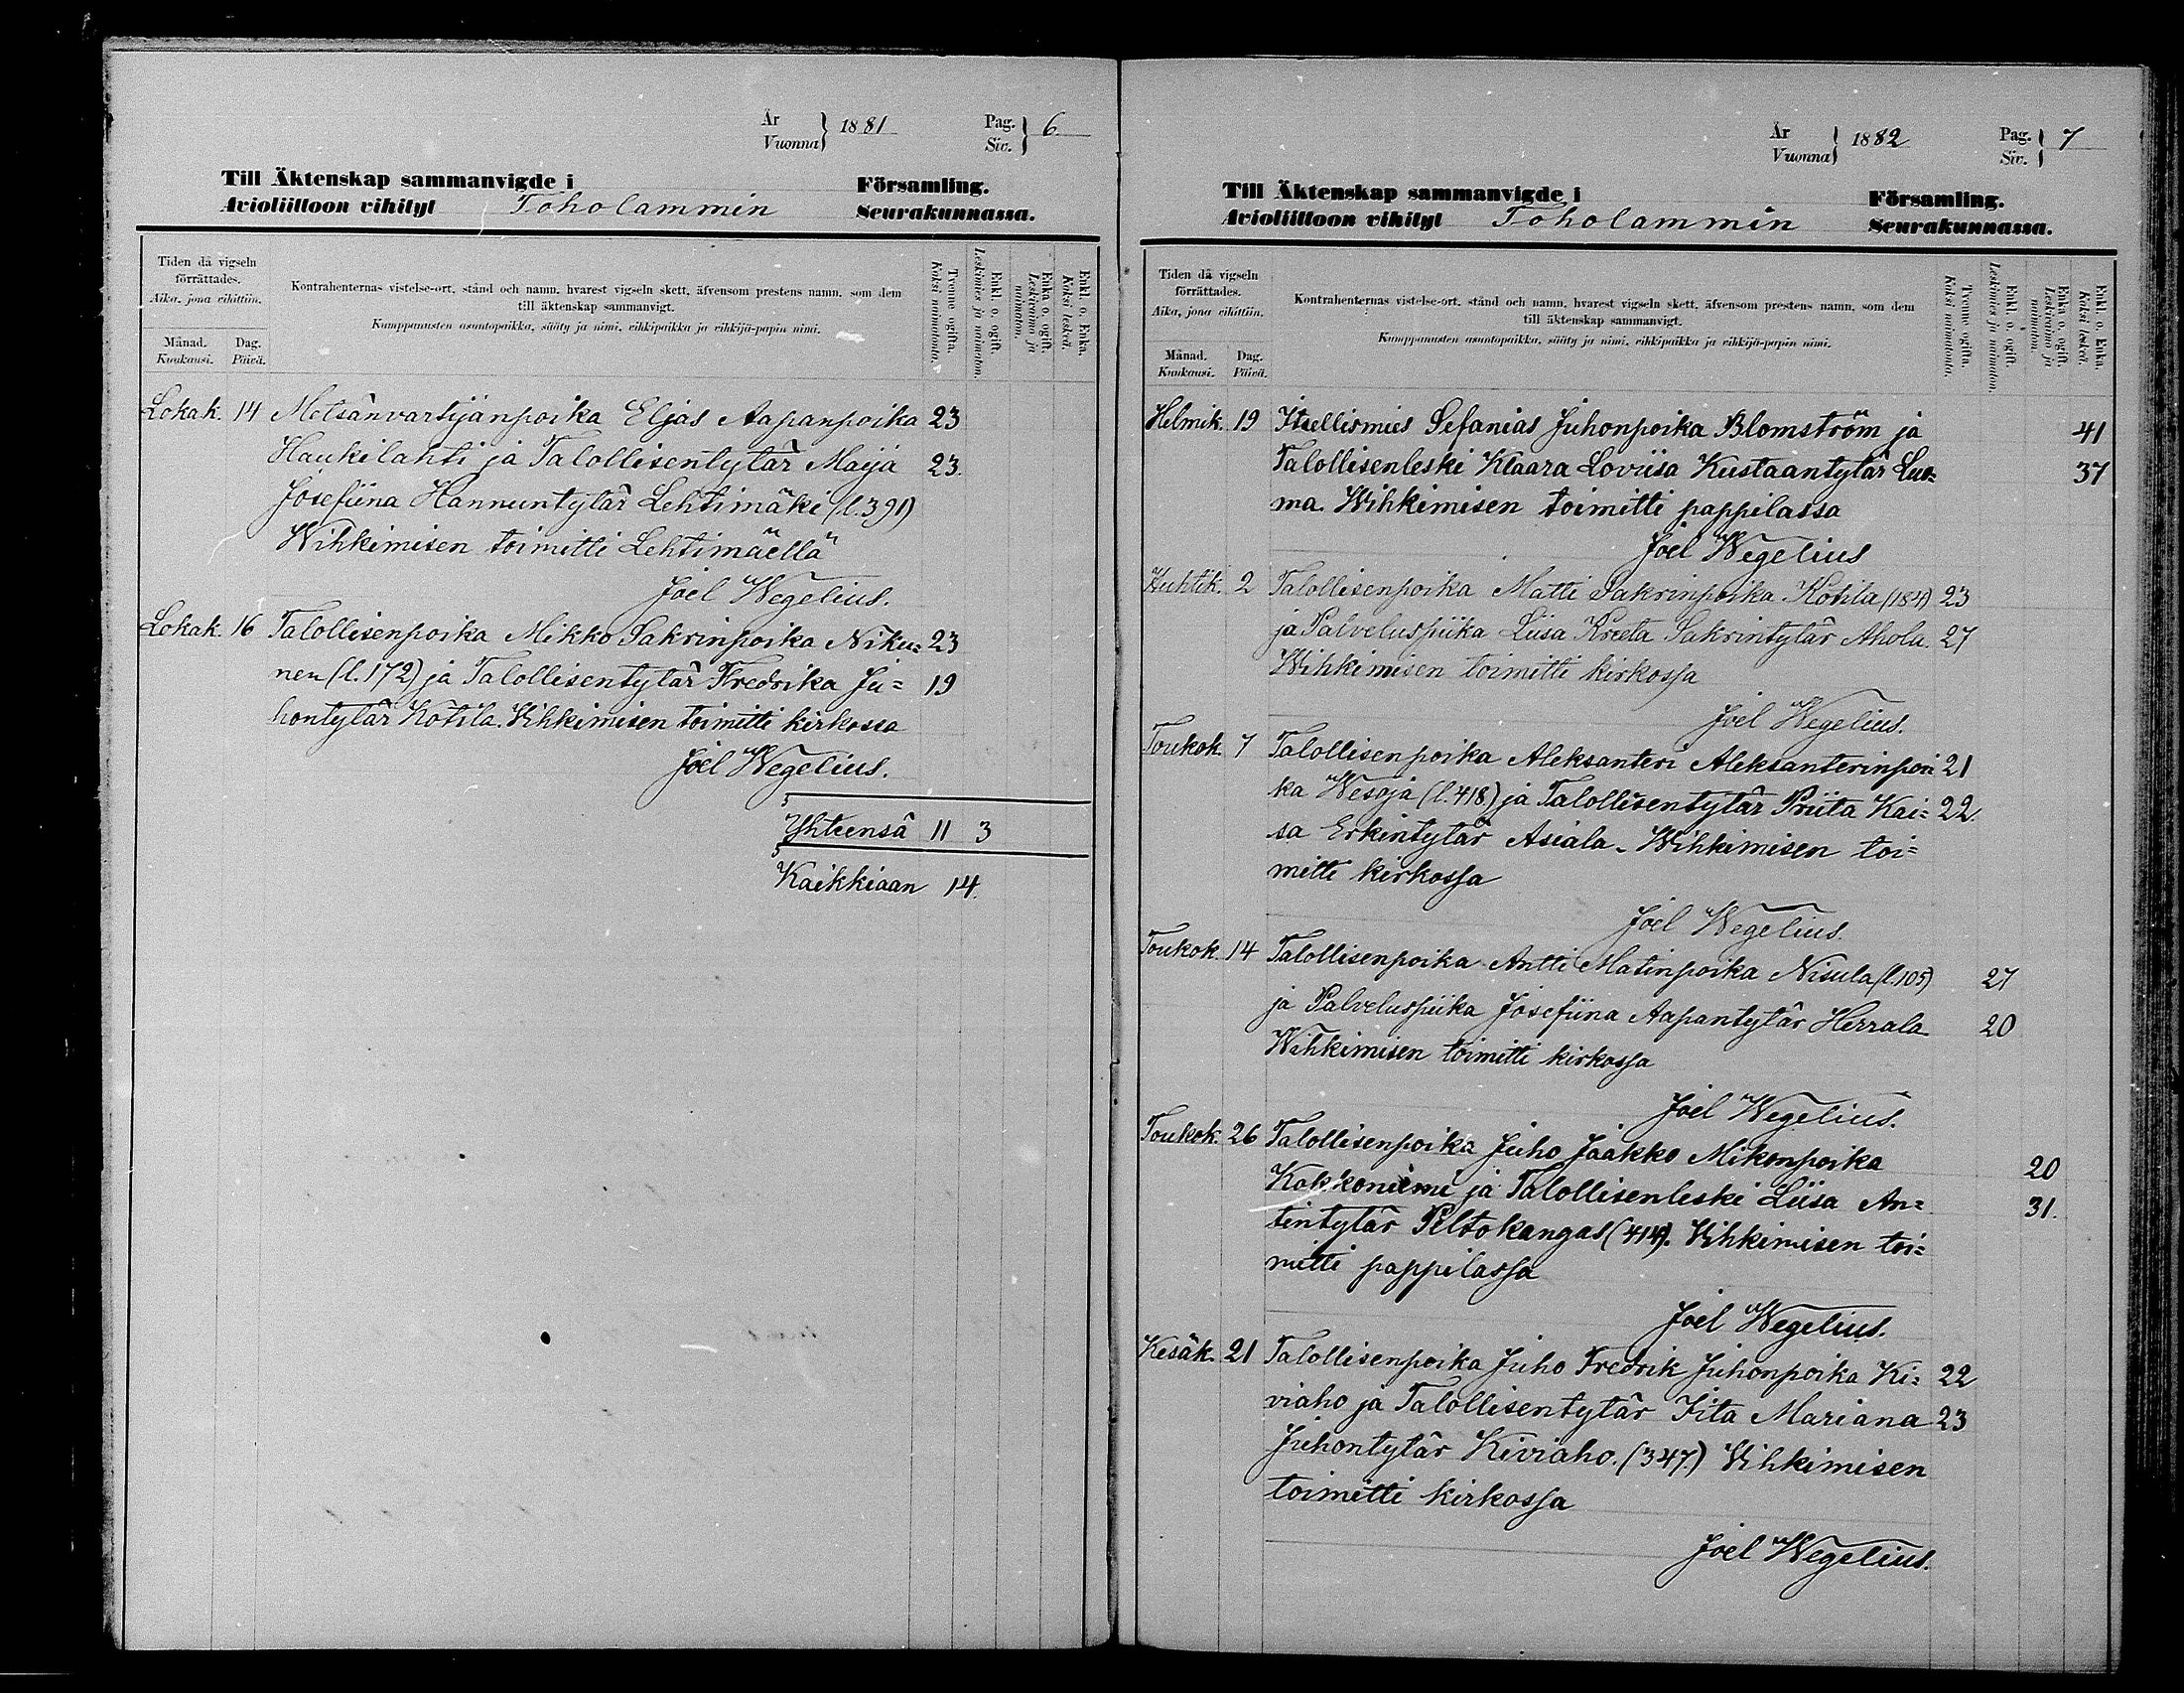 År
Vuonna } 1881 Pag.
Siv. } 6
Till Äktenskap sammanvigde i Församling.
Avioliittoon vihityt Toholammin Seurakunnassa.
Tiden då vigseln
förrättades.
Aika, jona vihittiin.
Månad. Dag.
Kuukausi. Päivä.
Kontrahenternas vistelse-ort, stånd och namn, hvarest vigseln skett, äfvensom prestens namn, som dem
till äktenskap sammanvigt.
Kumppanusten asuntopaikka, sääty ja nimi, vihkipaikka ja vihkijä-papin nimi.
Tvenne ogifta.
Kaksi naimatonta.
Enkl. o. ogift.
Leskimies ja naimaton.
Enka o. ogift.
Leskivaimo ja
naimaton.
Enkl. o. Enka.
Kaksi leskeä.
Lokak. 14 Metsänvartijanpoika Eljas Aapanpoika 23
Haukilahti ja Talollisentytär Maija 23.
Josefiina Hannuntytär Lehtimäki (l.391)
Wihkimisen toimitti Lehtimäellä
Joel Wegelius.
Lokak. 16 Talollisenpoika Mikko Sakrinpoika Niku= 23
nen (l.172) ja Talollisentytär Fredrika Ju= 19
hontytär Kotila. Vihkimisen toimitti kirkossa
Joel Wegelius.
Yhteensä 11 3
Kaikkiaan 14.
År
Vuonna } 1882 Pag.
Siv. } 7
Till Äktenskap sammanvigde i Församling.
Avioliittoon vihityt Toholammin Seurakunnassa.
Tiden då vigseln
förrättades.
Aika, jona vihittiin.
Månad. Dag.
Kuukausi. Päivä.
Kontrahenternas vistelse-ort, stånd och namn, hvarest vigseln skett, äfvensom prestens namn, som dem
till äktenskap sammanvigt.
Kumppanusten asuntopaikka, sääty ja nimi, vihkipaikka ja vihkijä-papin nimi.
Tvenne ogifta.
Kaksi naimatonta.
Enkl. o. ogift.
Leskimies ja naimaton.
Enka o. ogift.
Leskivaimo ja
naimaton.
Enkl. o. Enka.
Kaksi leskeä.
Helmik. 19 Itsellismies Sefanias Juhonpoika Blomström ja 41
Talollisenleski Klaara Loviisa Kustaantytär Luo= 37
ma. Wihkimisen toimitti pappilassa
Joel Wegelius
Huhtik. 2 Talollisenpoika Matti Sakrinpoika Kotila (184) 23
ja Palveluspiika Liisa Kreeta Sakrintytär Ahola. 27
Wihkimisen toimitti kirkossa
Joel Wegelius.
Toukok. 7 Talollisenpoika Aleksanteri Aleksanterinpoi 21
ka Wesoja (l.418.) ja Talollisentytär Priita Kai= 22.
sa Erkintytär Asiala. Wihkimisen toi=
mitti kirkossa
Joel Wegelius.
Toukok. 14 Talollisenpoika Antti Matinpoika Nisula (l.105) 27
ja Palveluspiika Josefiina Aapantytär Herrala 20
Wihkimisen toimitti kirkossa
Joel Wegelius.
Toukok. 26 Talollisenpoika Juho Jaakko Mikonpoika 20
Kokkoniemi ja Talollisenleski Liisa An= 31.
tintytär Peltokangas (414). Vihkimisen toi=
mitti pappilassa
Joel Wegelius.
Kesäk. 21 Talollisenpoika Juho Fredrik Juhonpoika Ki= 22
viaho ja Talollisentytär Iita Mariana 23
Juhontytär Kiviaho. (347.) Vihkimisen
toimitti kirkossa
Joel Wegelius.